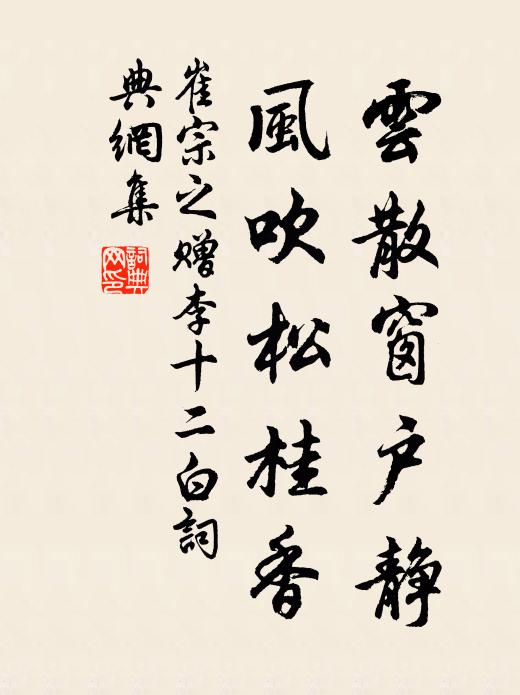 雲散窗户静
風吹松桂香
崔宗之赠李十二白詞
典網集
詞典网印